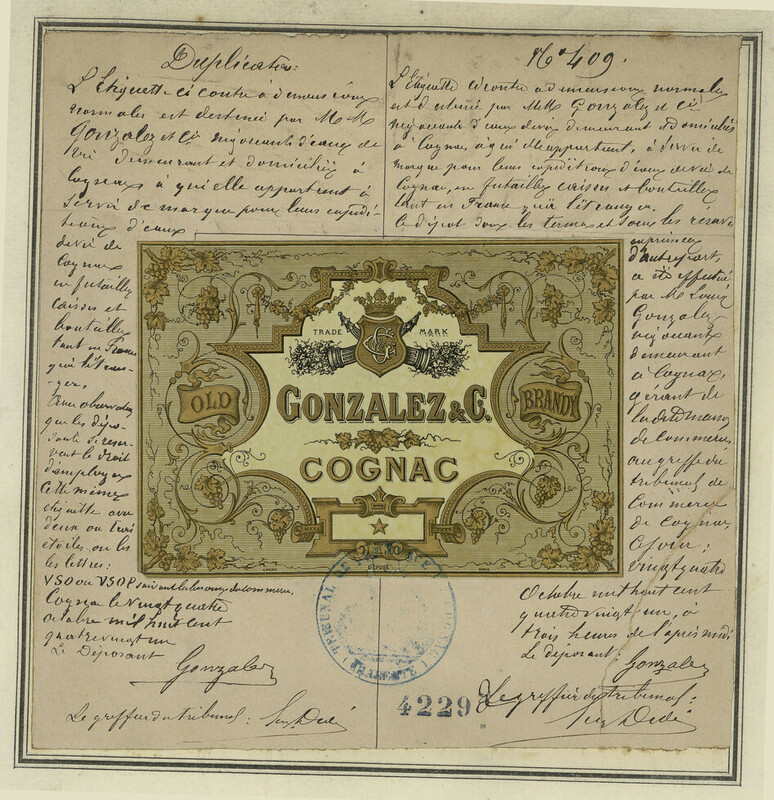 Duplicata:
L'étiquette ci contre à dimensions
normales est destinée par MM
Gonzalez et Cie négociants d'eaux de
vie demeurant et domiciliés à
Cognac à qui elle appartient à
servir de marque pour leurs expédi-
tions d'eaux
de vie de
Cognac
en futailles
caisses et
bouteilles
tant en France
qu'à l'étran-
ger.
que les dépo-
sants se réser-
vent le droit
d'employer
cette même
étiquette avec
deux ou trois
étoiles ou les
les lettres:
VSO ou VSOP suivant les besoins du commerce.
Cognac le vingt quatre
octobre mil huit cent
quatre vingt un
Le Déposant
Gonzalez
Le greffier du tribunal:
No 409.
L'étiquette ci contre à dimensions normales
est destinée par MM Gonzalez et Cie
négociants d'eaux de vie demeurant et domiciliés
à Cognac, à qui elle appartient, à servir de
marque pour leurs expéditions d'eaux de vie de
Cognac, en futailles caisses et bouteilles
tant en France qu'à l'étranger.
Le dépôt sous les termes et sous les réserves
exprimées
d'autre part,
a été effectué
par M. Louis
Gonzalez
négociant
demeurant
à Cognac,
gérant de
la dite maison
de commerce
au greffe du
tribunal de
Commerce
de Cognac
Ce jour:
vingt quatre
Octobre mil huit cent
quatre vingt un, à
trois heures de l'après midi
Le déposant: Gonzalez
Le greffier du tribunal:
TRADE MARK
OLD
GONZALEZ & C.
BRANDY
COGNAC
TRIBUNAL DE COMMERCE
4229